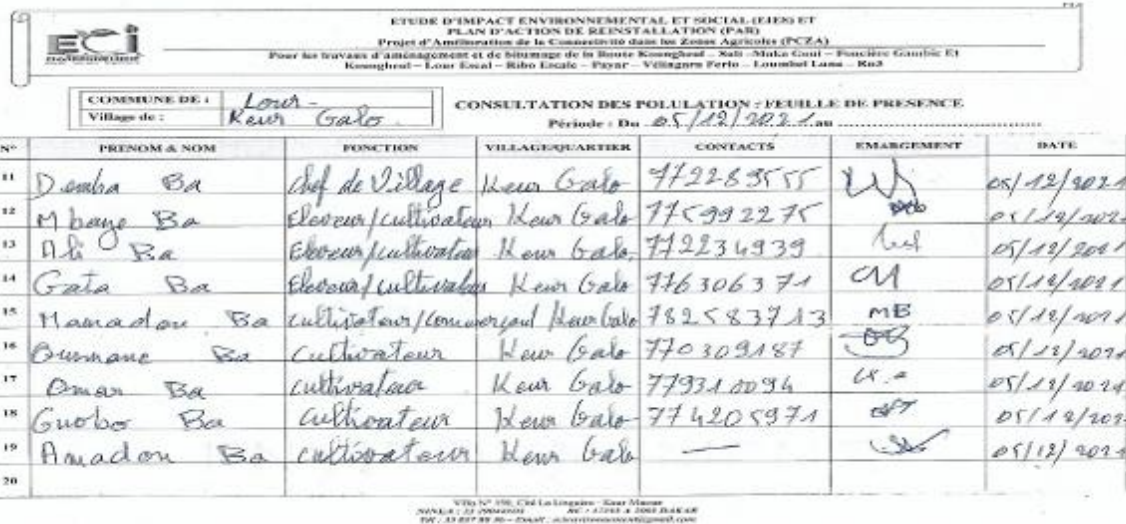 ECI
ETUDE D'IMPACT ENVIRONNEMENTAL ET SOCIAL (EIES) ET
PLAN D'ACTION DE REINSTALLATION (PAR)
Projet d'Amélioration de la Connectivité dans les Zones Agricoles (PCZA)
Pour les travaux d'aménagement et de bitumage de la Route Koungheul – Sali – Maka Goui – Foncière Gambie Et
Koungheul – Lour Escal – Ribo Escale – Payar – Vélingara Ferlo – Loumbel Lana – Rn3
COMMUNE DE : Lour
Village de : Keur Galo
CONSULTATION DES POLULATION : FEUILLE DE PRESENCE
Période : Du 05/12/2021 au
N° PRENOM & NOM FONCTION VILLAGE/QUARTIER CONTACTS EMARGEMENT DATE
11 Demba Ba Chef de Village Keur Galo 772289555 05/12/2021
12 Mbaye Ba Eleveur/cultivateur Keur Galo 775992275 05/12/2021
13 Ali Ba Eleveur/cultivateur Keur Galo 772234939 05/12/2021
14 Gata Ba Eleveur/cultivateur Keur Galo 776306371 05/12/2021
15 Mamadou Ba cultivateur/commerçant Keur Galo 782583713 MB 05/12/2021
16 Ousmane Ba Cultivateur Keur Galo 770309187 05/12/2021
17 Omar Ba cultivateur Keur Galo 779310094 05/12/2021
18 Guobo Ba Cultivateur Keur Galo 774205971 05/12/2021
19 Amadou Ba cultivateur Keur Galo — 05/12/2021
20